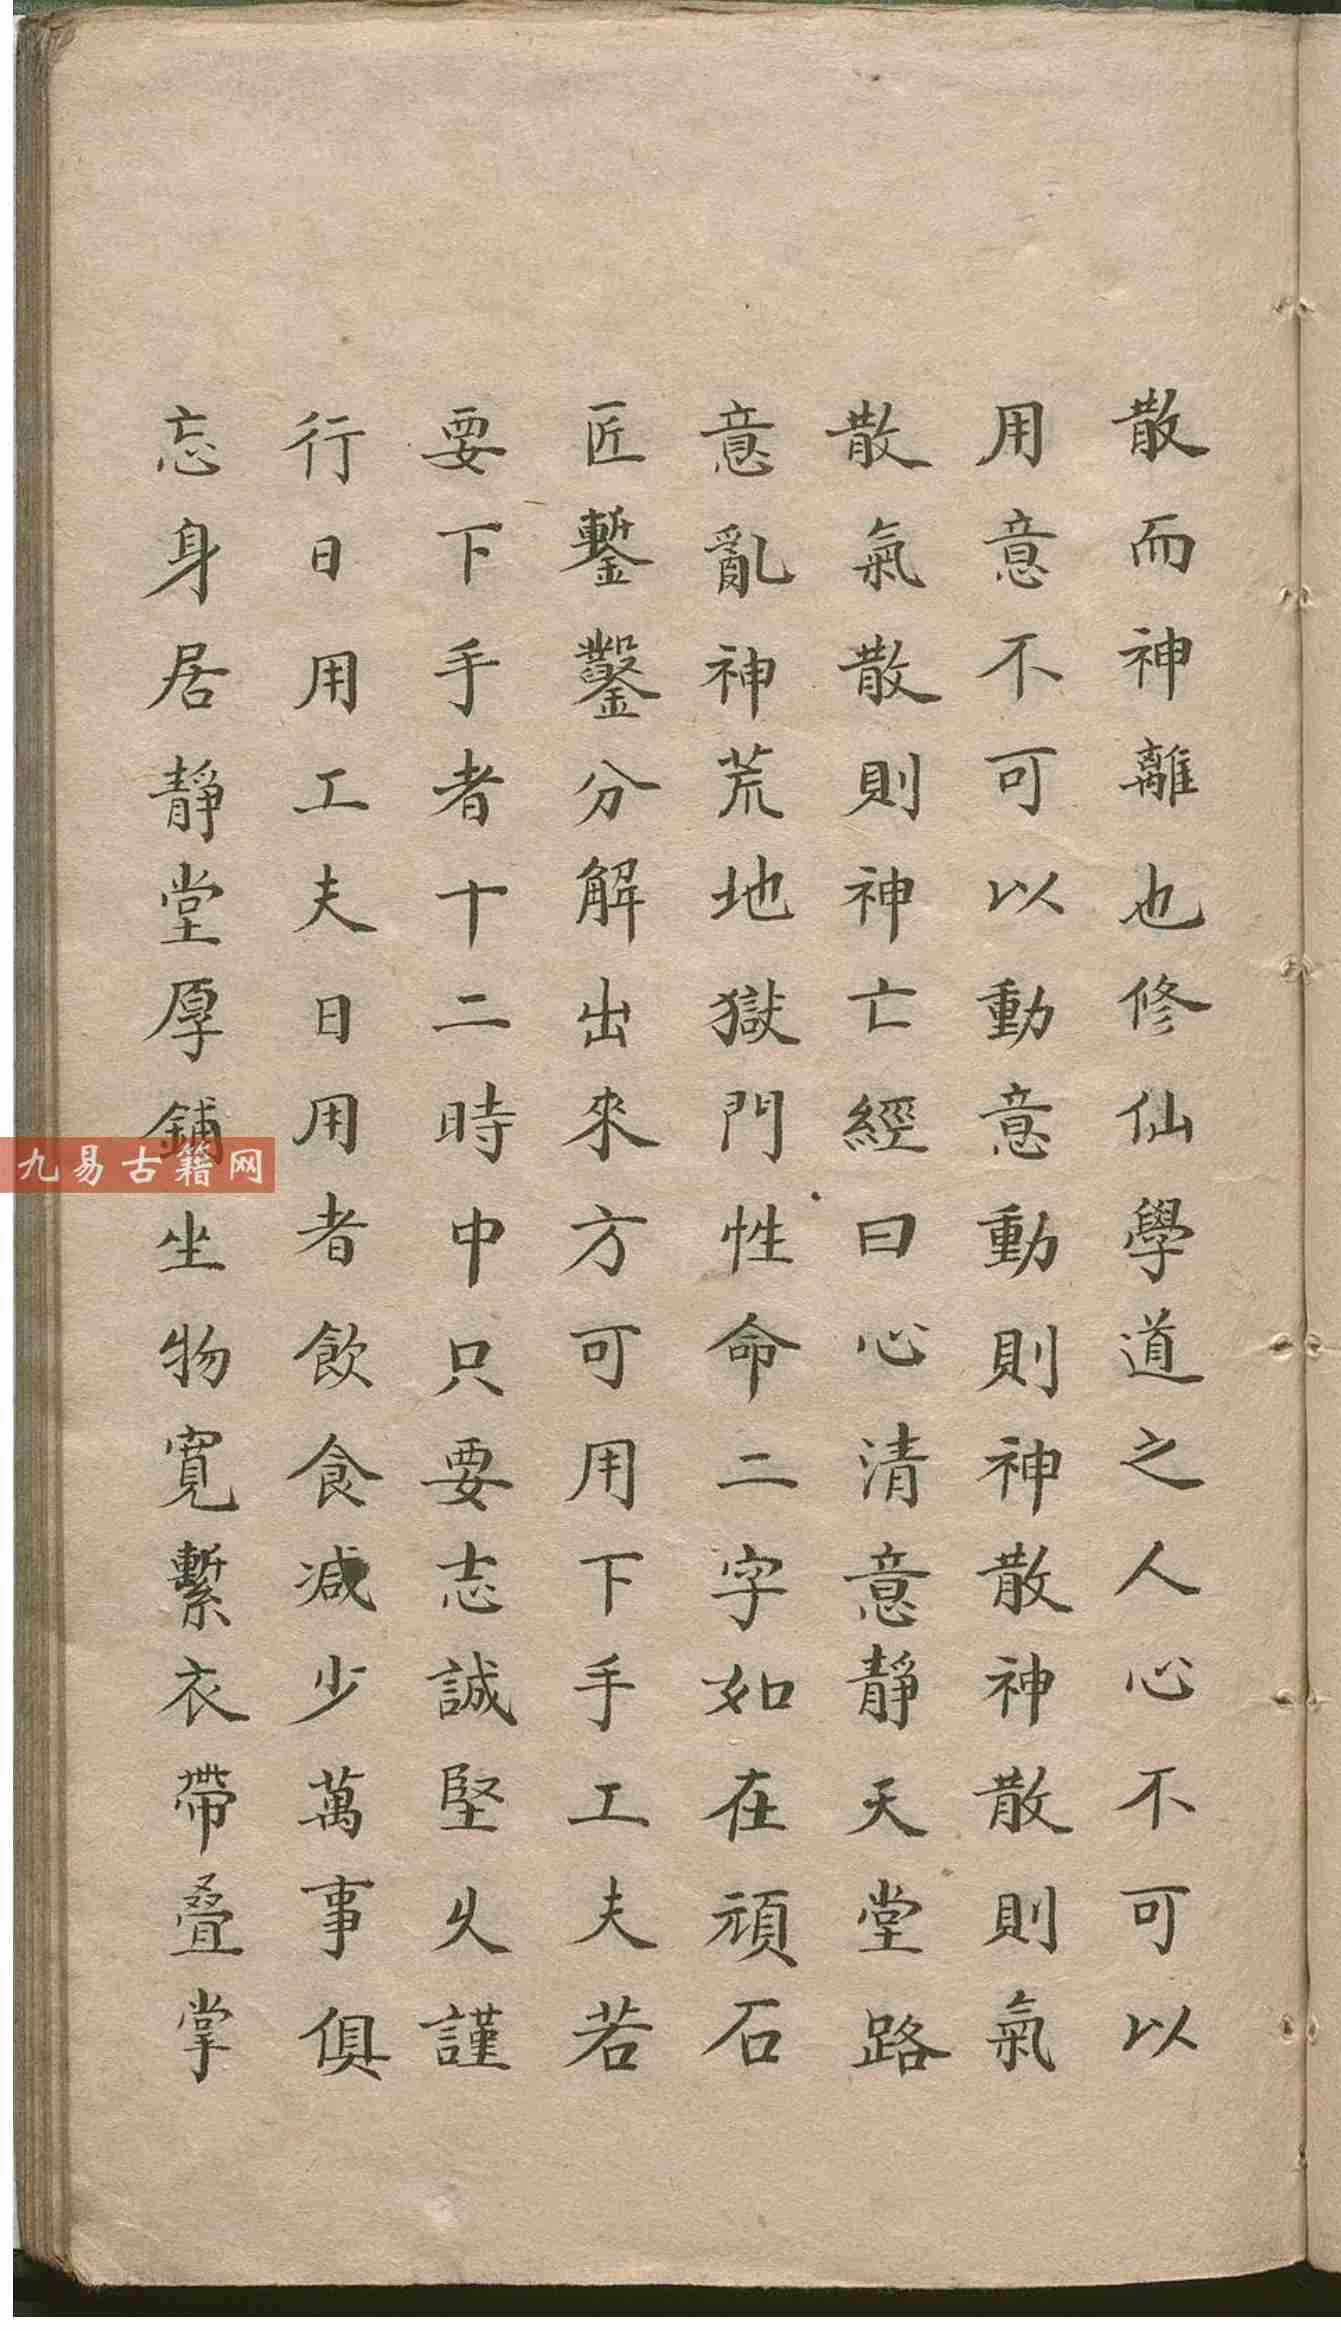 散而神離也修仙學道之人心不可以
用意不可以動意動則神散神散則氣
散氣散則神亡經曰心清意靜天堂路
意亂神荒地獄門性命二字如在頑石
匠鏨鑿分解出來方可用下手工夫若
要下手者十二時中只要志誠堅久謹
行日用工夫日用者飲食減少萬事俱
忘身居靜堂厚鋪坐物寬繫衣帶疊掌
九易古籍网